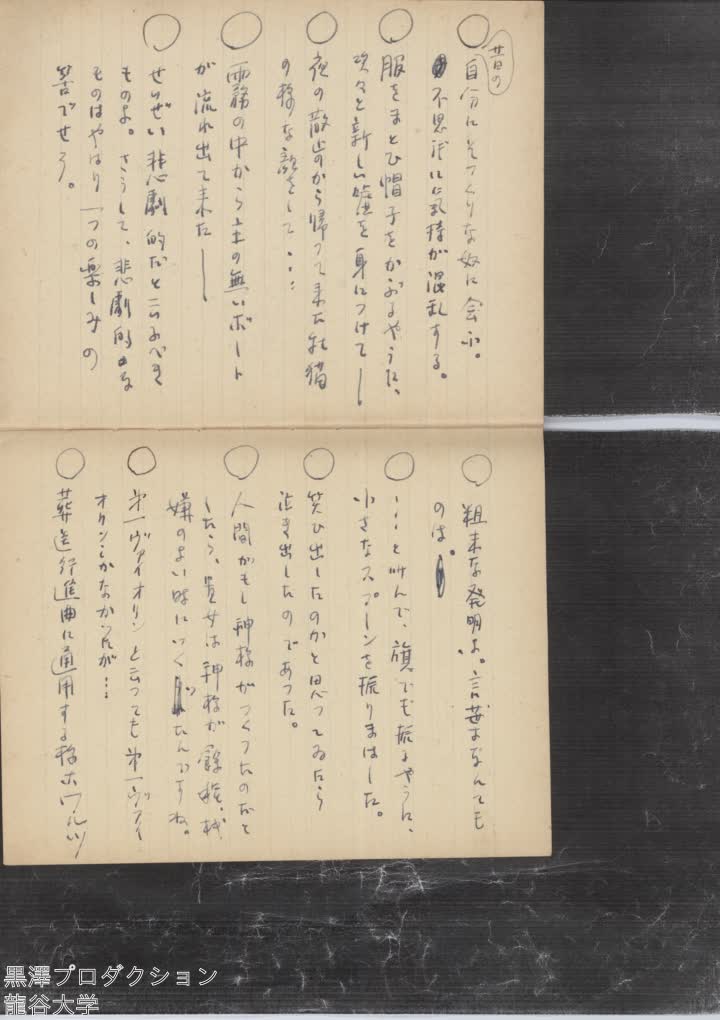 昔の
○自分にそつくりな奴に会ふ。
不思議に気持が混乱する。
○服をまとひ帽子をかぶるやうに、
次々と新しい嘘を身につけて―
○夜の散歩から帰つて来た牡猫
の様な顔をして・・・
○霧の中から主の無いボート
が流れ出て来た―
○せいぜい悲劇的だと云ふべき
ものよ。さうして、悲劇的な
ものはやはり一つの楽しみの
筈でせう。
○粗末な発明よ。言葉なんても
のは。
○・・・と叫んで、旗でも振るやうに、
小さなスプーンを振りまはした。
○笑ひ出したのかと思つてゐたら
泣き出したのであつた。
○人間がもし神様がつくつたのだと
したら、貴女は神様が余程、機
嫌のよい時につくつたんですね。
○第一ヴァイオリンと云つても第一ヴァイ
オリンしかなかつたが・・・
○葬送行進曲に通用する様なワルツ
黒澤プロダクション
龍谷大学